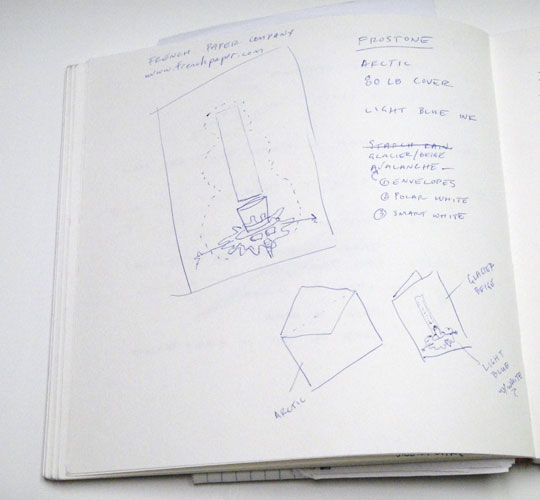 FRENCH PAPER COMPANY
www.frenchpaper.com
FROSTONE
ARCTIC
80 LB COVER
LIGHT BLUE INK
STARCH RAIN
GLALIER/BEIGE
AVALANCHE —
① ENVELOPES
② POLAR WHITE
③ SMART WHITE
GLACIER
BEIGE
LIGHT
BLUE
WHITE
?
ARCTIC